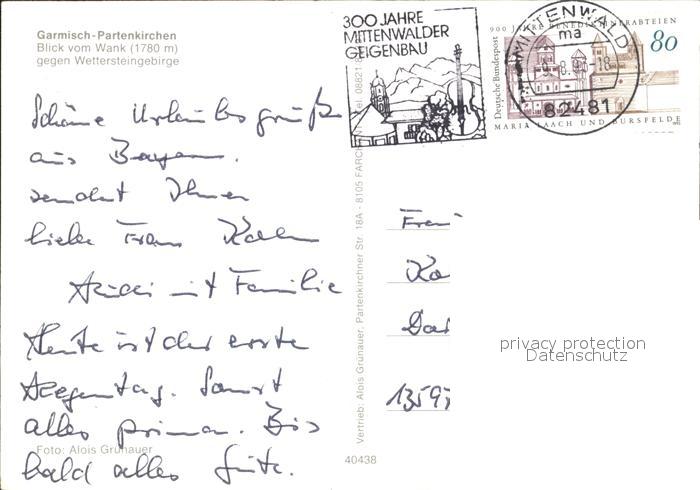 Garmisch-Partenkirchen
Blick vom Wank (1780 m)
gegen Wettersteingebirge
Schöne Urlaubsgrüße
aus Bayern.
sendet Ihnen
liebe Frau
mit Familie
Heute ist der erste
Regentag. Sonst
alles prima. Bis
bald alles Gute.
Foto: Alois Grünauer
Vertrieb: Alois Grünauer, Partenkirchner Str. 18A - 8105 FARCHANT - Tel. 08821
40438
300 JAHRE
MITTENWALDER
GEIGENBAU
MITTENWALD
ma
82481
900 JAHRE BENEDIKTINERABTEIEN
Deutsche Bundespost
80
MARIA LAACH UND BURSFELDE
Frau
Ka
Dar
1359
privacy protection
Datenschutz